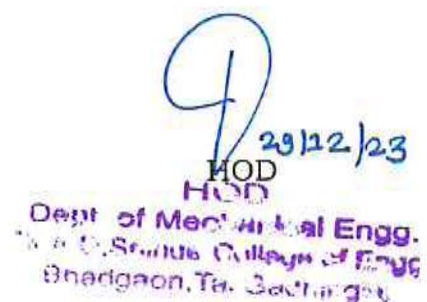 29/12/23
HOD
HOD
Dept of Mechanical Engg.
College of Engg
Bhadgaon, Ta.